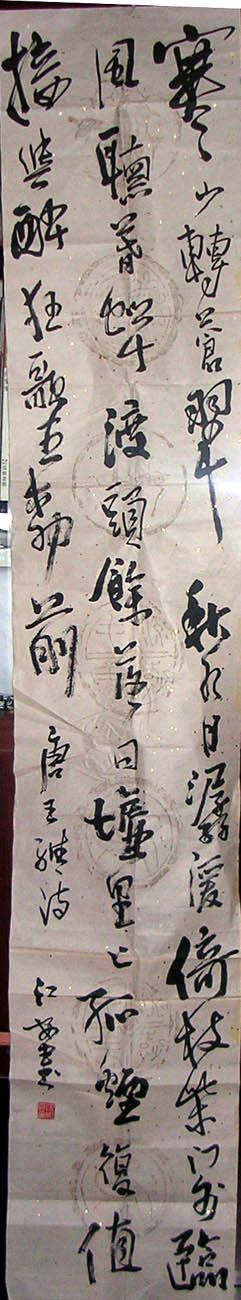 寒山轉蒼翠秋水日潺湲倚杖柴門外臨
風聽暮蟬渡頭餘落日墟里上孤煙復值
接輿醉狂歌五柳前 唐王維詩 江書